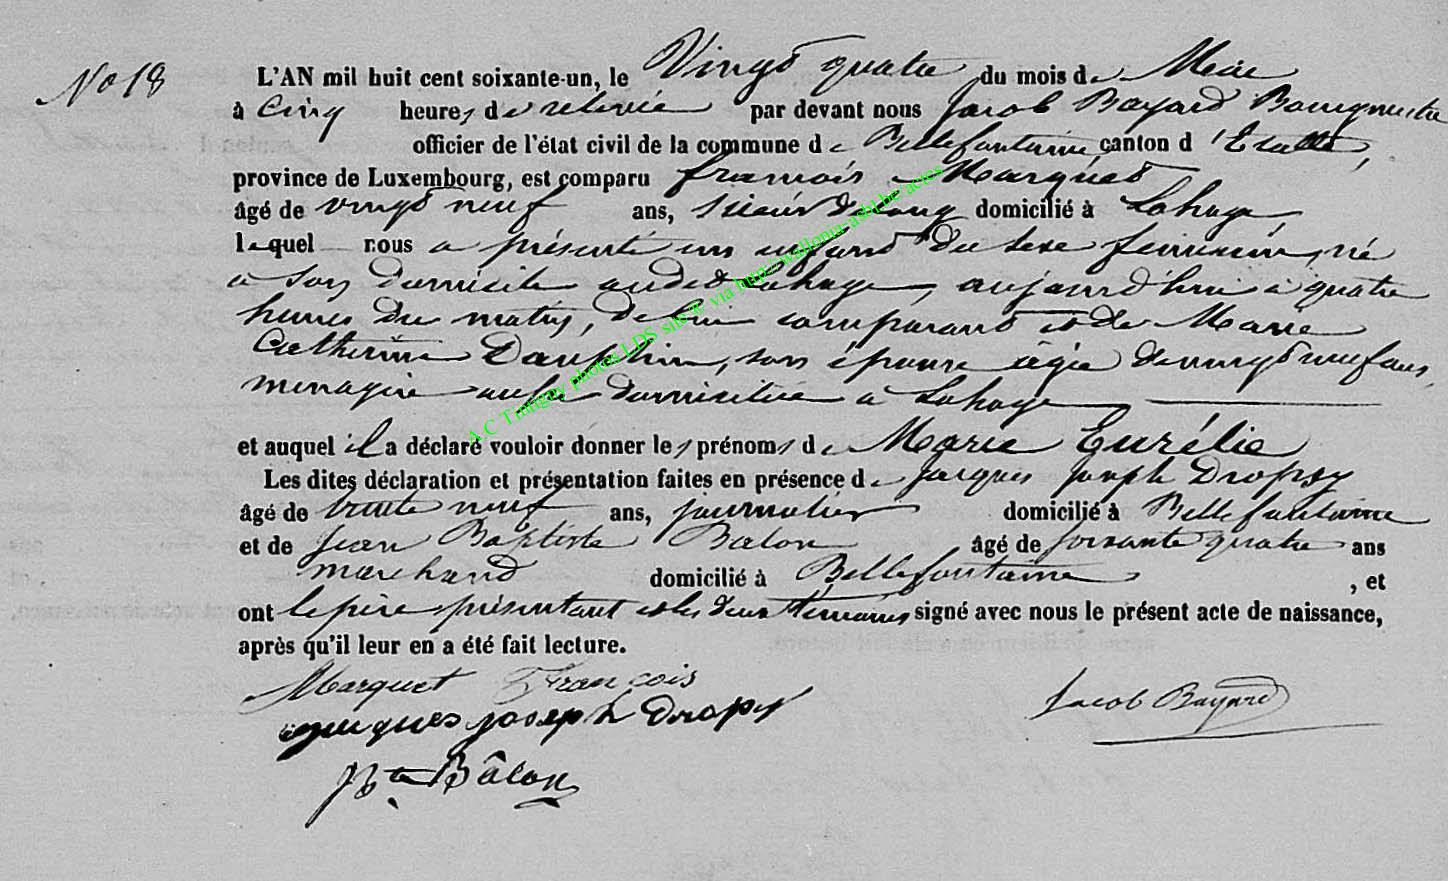 No 18
L'AN mil huit cent soixante-un, le Vingt quatre du mois de Mai
à Cinq heures de relevée par devant nous Jacob Bayard Bourgmestre
officier de l'état civil de la commune de Bellefontaine canton d'Etalle,
province de Luxembourg, est comparu françois Marquet
âgé de vingt neuf ans, scieur de long domicilié à Lahage
lequel nous a présenté un enfant du sexe féminin, né
à son domicile audit Lahage, aujourd'hui à quatre
heures du matin, de lui comparant et de Marie
Catherine Dauphin, son épouse âgée de vingt neuf ans,
ménagère aussi domiciliée à Lahage
et auquel il a déclaré vouloir donner les prénoms de Marie Eurélie
Les dites déclaration et présentation faites en présence de Jacques Joseph Dropsy
âgé de trente neuf ans, journalier domicilié à Bellefontaine
et de Jean Baptiste Balon âgé de soixante quatre ans
marchand domicilié à Bellefontaine, et
ont le père présentant et les deux témoins signé avec nous le présent acte de naissance,
après qu'il leur en a été fait lecture.
Marquet François
Jacob Bayard
jacques joseph Dropsy
JBte Bâlon
A C Tintigny photos LDS site ® via http://wallonia-asbl.be/actes